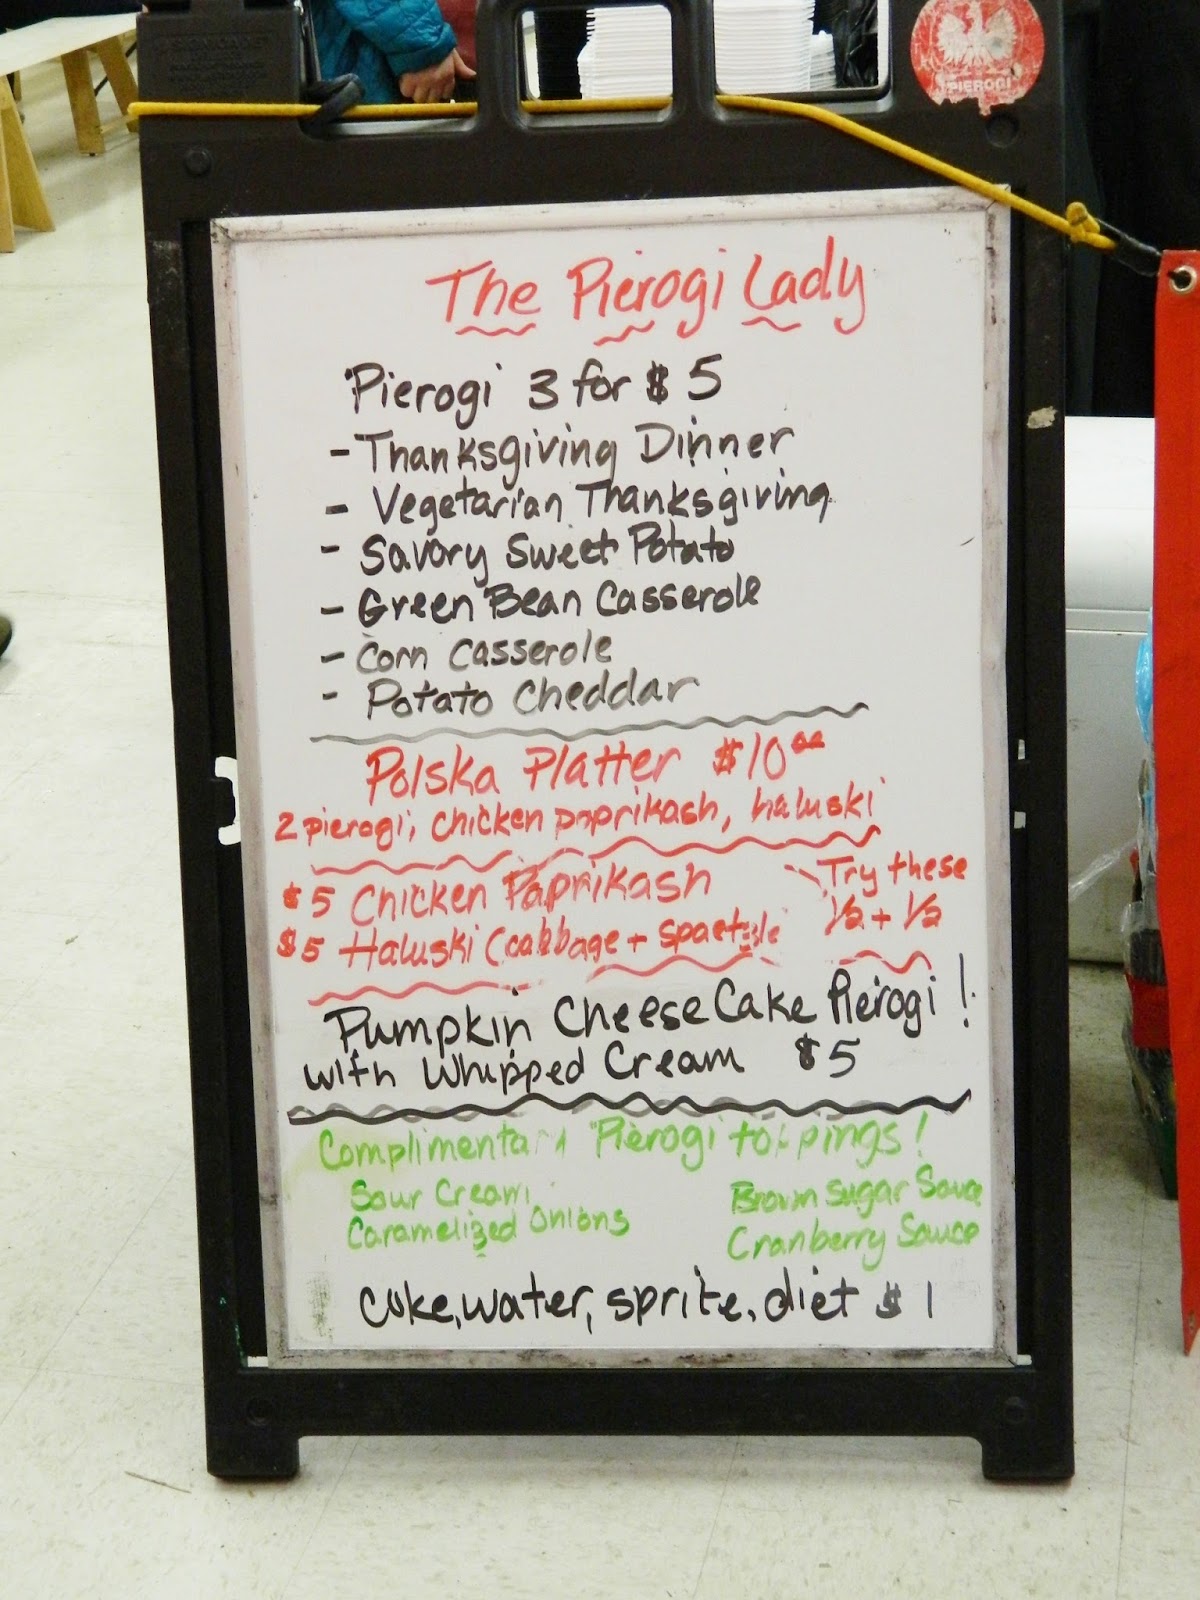 PIEROGI
The Pierogi Lady
Pierogi 3 for $5
- Thanksgiving Dinner
- Vegetarian Thanksgiving
- Savory Sweet Potato
- Green Bean Casserole
- Corn Casserole
- Potato Cheddar
Polska Platter $10.00
2 pierogi, chicken paprikash, haluski
$5 Chicken Paprikash
$5 Haluski (cabbage + spaetzle
Try these
1/2 + 1/2
Pumpkin Cheese Cake Pierogi!
with Whipped Cream $5
Complimentary Pierogi toppings!
Sour Cream
Caramelized Onions
Brown Sugar Sauce
Cranberry Sauce
coke, water, sprite, diet $1